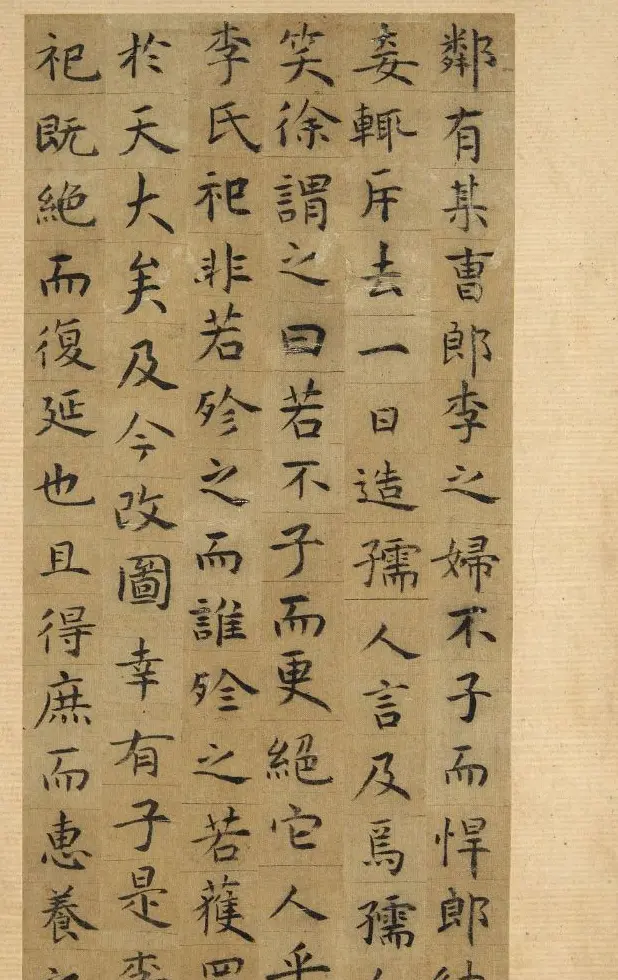 鄰有某曹郎李之婦不子而悍郎納
妾輒斥去一日造孺人言及焉孺人
笑徐謂之曰若不子而更絕它人乎
李氏祀非若殄之而誰殄之若獲罪
於天大矣及今改圖幸有子是李
祀既絕而復延也且得庶而惠養